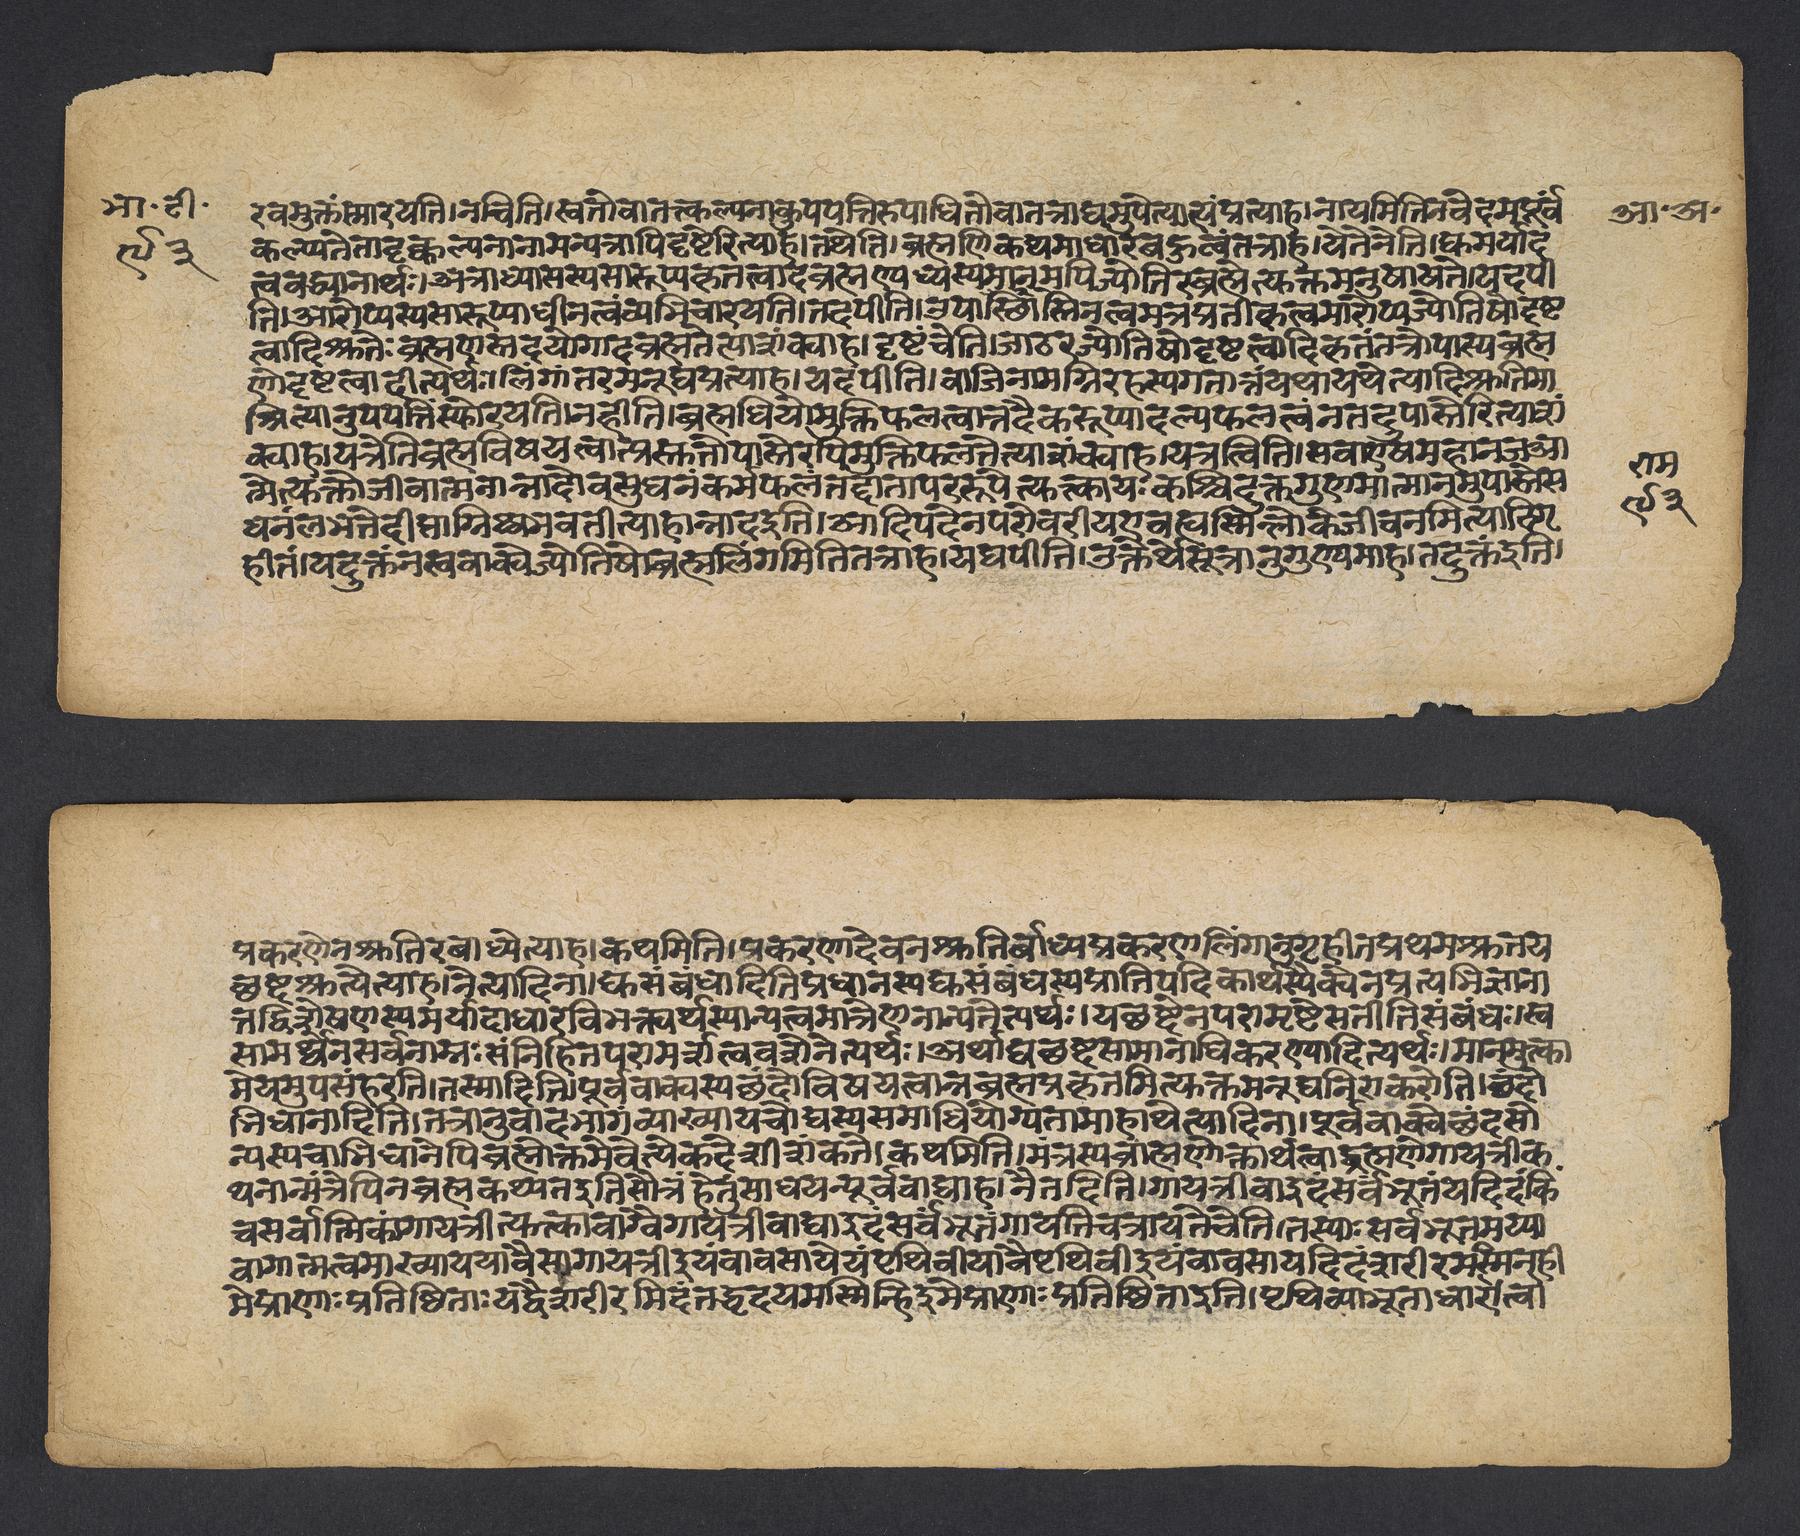 भा॰ टी॰
९३
आ॰ अ॰
रवमुक्तं स्मारयति। नन्विति। स्वतो वा तत्कल्पनाकुपपत्तिरुपाधितो वा तत्राद्यमुपेत्यांत्यं प्रत्याह। नायमिति नचेदमपूर्वं
कल्प्यतेतादृक्कल्पनानामन्यत्रापिदृष्टेरित्याह। तथेति। ब्रह्मणिकथमाधारबहुत्वंतत्राह। येतेनेति। द्युमर्यादे
त्ववद्ध्यानार्थः। अत्राध्यासस्यसारूप्यकृतत्वादब्रह्मण्यध्यस्यमानमपिज्योतिरब्रह्मेत्युक्तमनुभाषते। यदपी
ति। आरोप्यस्यसारूप्याधीनत्वंव्यभिचारयति। तदपीति। उपास्तिस्थानत्वमत्रप्रतीकत्वमारोप्यज्योतिषोदृष्ट
त्वादिश्रुतेः ब्रह्मणस्तदयोगादब्रह्मतेत्याशंक्याह। दृष्टंचेति। जाठरज्योतिषोदृष्टत्वादिकृतंतत्रोपास्यब्रह्म
णोदृष्टत्वादीत्यर्थः। लिंगांतरमनूद्यप्रत्याह। यदपीति। वाजिनामग्निरहस्यगतान्तंयथायथेत्यादिश्रुतिमा
श्रित्यानुपपत्तिंस्फोरयति। नहीति। ब्रह्मधियोमुक्तिफलत्वात्तदैकरूप्यादल्पफलत्वंनतदुपास्तेरित्याशं
क्याह। यत्रेतिब्रह्मविषयत्वात्प्रस्तुतोपास्तेरपिमुक्तिफलतेत्याशंक्याह। यत्रत्विति। सवाएषमहानजआ
त्मेत्युक्तोजीवात्मनान्नादोवसुधनंकर्मफलंतद्दातापररूपेत्युक्त्कायः कश्चिदुक्तगुणमात्मानमुपास्तेस
धनंलभतेदीप्ताग्निश्चभवतीत्याहान्नादइति। आदिपदेनपरोवरीयएवत्वस्मिन्लोकेजीवनमित्यादिगृ
हीतं। यदुक्तंनस्ववाक्येज्योतिषोब्रह्मलिंगमितितत्राह। यद्यपीति। उक्तेर्थेसूत्रानुगुण्यमाह। तदुक्तंइति।
राम
९३
प्रकरणेनश्रुतिरबाध्येत्याह। कथमिति। प्रकरणादेवनश्रुतिर्बाध्यप्रकरणलिंगानुगृहीतप्रथमश्रुतय
च्छब्दश्रुत्येत्याह। नेत्यादिना। द्युसंबंधादितिप्रधानस्यद्युसंबंधस्यप्रातिपदिकार्थस्यैक्येनप्रत्यभिज्ञाना
त्तद्विशेषणस्यमर्यादाधारविभक्त्यर्थस्यान्यत्वमात्रेणनान्यतेत्यर्थः। यच्छब्देनपरामृष्टेसतीतिसंबंधः। स्व
सामर्थ्येनसर्वनाम्नः संनिहितपरामर्शत्ववशेनेत्यर्थः। अर्थाद्यच्छब्दसामानाधिकरण्यादित्यर्थः। मानमुक्त्का
मेयमुपसंहरति। तस्मादिति। पूर्ववाक्यस्यछंदोविषयत्वान्नब्रह्मप्रकृतमित्युक्तमनूद्यनिराकरोति। छंदो
भिधानादिति। तत्रानुवादभागंव्याख्यायचोद्यस्यसमाधियोग्यतामाहाथेत्यादिना। पूर्ववाक्येछंदसो
न्यस्यचाभिधानेपिब्रह्मोक्तमेवेत्येकदेशीशंकते। कथमिति। मंत्रस्यब्राह्मणोक्तार्थत्वाद्ब्राह्मणेगायत्रीक
थनान्मंत्रेपिनब्रह्मकथ्यतइतिसौत्रंहेतुंसाधयन्पूर्ववाद्याह। नैतदिति। गायत्रीवाइदंसर्वंभूतंयदिदंकिं
चसर्वात्मिकांगायत्रीत्युक्त्कावाग्वैगायत्रीवाग्वाइदंसर्वंभूतंगायतिचत्रायतेचेति। तस्याः सर्वभूतमय्या
वागात्मत्वमाख्याययावैसागायत्रीइयंवावसायेयंपृथिवीयावैपृथिवीइयंवावसायदिदंशरीरमस्मिन्ही
मेप्राणाः प्रतिष्ठिताः यद्वैशरीरमिदंतद्धृदयमस्मिन्हिइमेप्राणाः प्रतिष्ठिताइति। पृथिव्याभूताधारत्वा